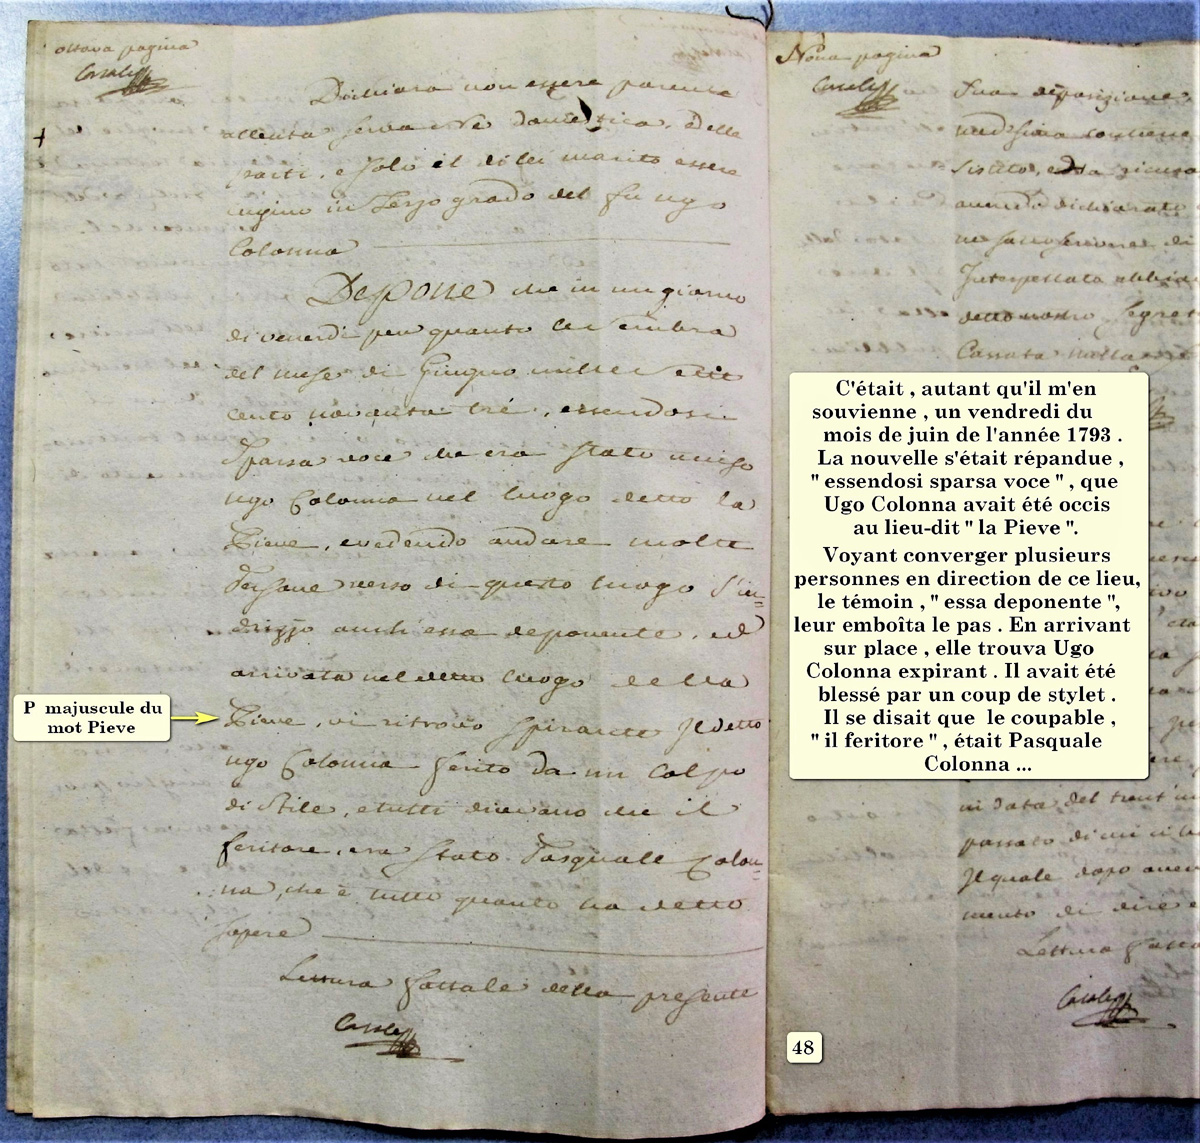 ottava pagina
Casale
Dichiara non essere parente
allenta serva ne domestica. delle
parti, e solo il di lei marito essere
cugino in terzo grado del fu ugo
Colonna
Depone che in un giorno
di venerdi per quanto le sembra
del mese di Giugno mille sette
cento novanta tré, essendosi
sparsa voce che era stato ucciso
ugo Colonna nel luogo detto la
Pieve, e vedendo andare molte
Persone verso di questo luogo s'in=
=drizzò anch'essa deponente, ed
arrivata nel detto luogo della
Pieve, vi ritrovò spirante Il detto
ugo Colonna ferito da un Colpo
di stile, e tutti dicevano che il
feritore, era stato Pasquale Colon=
na, che è tutto quanto ha detto
sapere
Lettura fattale della presente
Casale
P majuscule du
mot Pieve
Nona pagina
Casale
sua deposizione,
avendo dichiarato
Interpellata
detto nostro Segret
C'était , autant qu'il m'en
souvienne , un vendredi du
mois de juin de l'année 1793 .
La nouvelle s'était répandue ,
" essendosi sparsa voce " , que
Ugo Colonna avait été occis
au lieu-dit " la Pieve ".
Voyant converger plusieurs
personnes en direction de ce lieu,
le témoin , " essa deponente ",
leur emboîta le pas . En arrivant
sur place , elle trouva Ugo
Colonna expirant . Il avait été
blessé par un coup de stylet .
Il se disait que le coupable ,
" il feritore " , était Pasquale
Colonna ...
in data del trent'un
passato di
Il quale dopo aver
mento di dire e
Lettura fatta
Casale
48